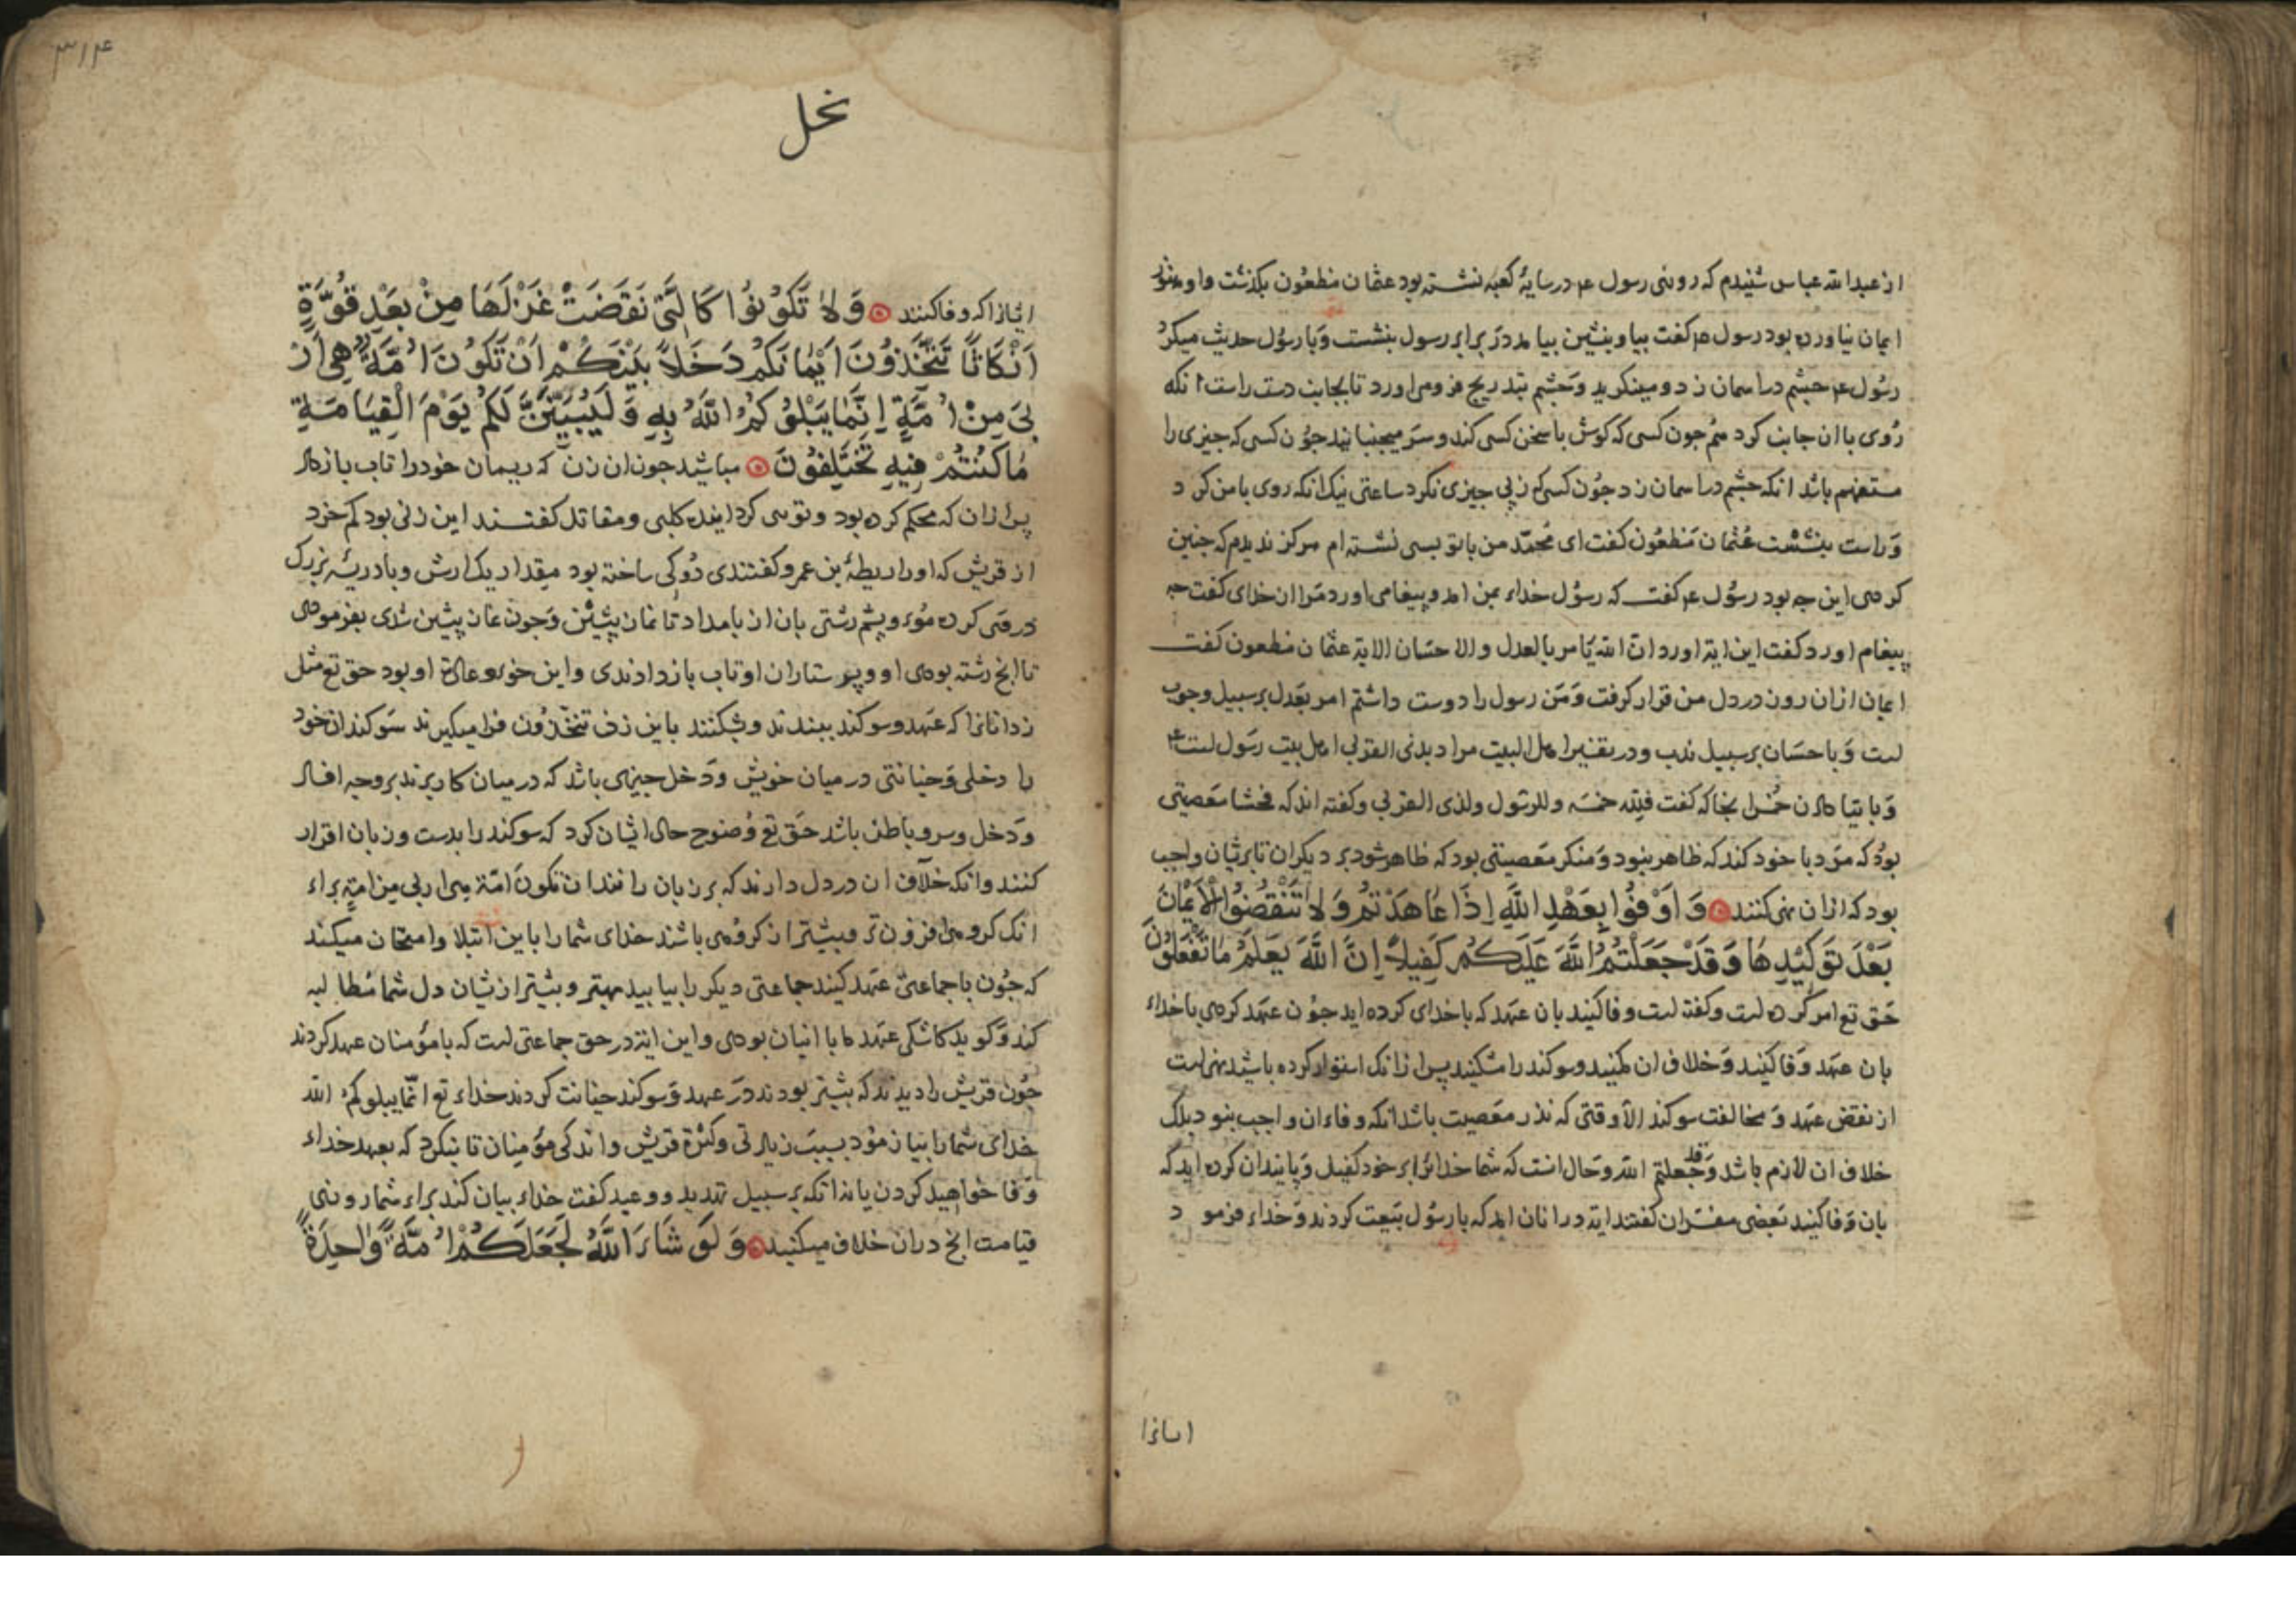 از عبدالله عباس شنیدم که روزی رسول عم در سایهٔ کعبه نشسته بود عثمان مظعون بکذشت و او هنوز
ایمان نیاورده بود رسول عم کفت بیا و بنشین بیامد در برابر رسول بنشست و با رسول حدیث میکرد
رسول عم چشم در اسمان زد و مینکرید و چشم بتدریج فرو می اورد تا بجانب دست راست انکه
روی با ان جانب کرد همچون کسی که کوش با سخن کسی کند و سر میجنباند چون کسی که چیزی را
مستفهم باشد انکه چشم در اسمان زد چون کسی که از پی چیزی نکرد ساعتی نیک انکه روی با من کرد
و راست بنشست عثمان مظعون کفت ای محمد من با تو بسی نشسته ام هرکز ندیدم که چنین
کردی این چه بود رسول عم کفت که رسول خدای بمن امد و پیغامی اورد مرا از خدای کفت چه
پیغام اورد کفت این ایة اورد ان الله یامر بالعدل والاحسان الایة عثمان مظعون کفت
ایمان از ان روز در دل من قرار کرفت و من رسول را دوست داشتم امر بعدل بر سبیل وجوب
است و باحسان بر سبیل ندب و در تفسیر اهل البیت مراد بذی القربی اهل بیت رسول است
و بایتا دادن خمس انجا که کفت فلله خمسه وللرسول ولذی القربی و کفته اند که فحشا معصیتی
بود که مرد با خود کند که ظاهر نبود و منکر معصیتی بود که ظاهر شود بر دیکران تا بریشان واجب
بود که از ان نهی کنند وَاَوْفُوا بِعَهْدِ اللَّهِ اِذَا عَاهَدْتُمْ وَلَا تَنْقُضُوا الْاَيْمَانَ
بَعْدَ تَوْكِيْدِهَا وَقَدْ جَعَلْتُمُ اللَّهَ عَلَيْكُمْ كَفِيلًا اِنَّ اللَّهَ يَعْلَمُ مَا تَفْعَلُوْنَ
حق تع امر کرده است و کفته است وفا کنید بان عهد که با خدای کرده اید چون عهد کردی با خدای
بان عهد وفا کنید و خلاف ان مکنید و سوکند را مشکنید پس از انک استوار کرده باشید نهی است
از نقض عهد و مخالفت سوکند الا وقتی که نذر معصیت باشد انکه وفای ان واجب نبود بلک
خلاف ان لازم باشد وقد جعلتم الله و حال انست که شما خدایرا بر خود کفیل و پایندان کرده اید که
بان وفا کنید بعضی مفسران کفتند ایة در انان امد که با رسول بیعت کردند و خدای فرمود
ایشانرا
۳۱۴
نحل
ایشانرا که وفا کنند وَلَا تَكُوْنُوْا كَالَّتِىْ نَقَضَتْ غَزْلَهَا مِنْ بَعْدِ قُوَّةٍ
اَنْكَاثًا تَتَّخِذُوْنَ اَيْمَانَكُمْ دَخَلًا بَيْنَكُمْ اَنْ تَكُوْنَ اُمَّةٌ هِىَ اَرْ
بٰى مِنْ اُمَّةٍ اِنَّمَا يَبْلُوْكُمُ اللَّهُ بِهِ وَلَيُبَيِّنَنَّ لَكُمْ يَوْمَ الْقِيَامَةِ
مَا كُنْتُمْ فِيْهِ تَخْتَلِفُوْنَ مباشید چون ان زن که ریسمان خود را تاب باز داد
پس از ان که محکم کرده بود و قوی کردانیده کلبی و مقاتل کفتند این زنی بود کم خرد
از قریش که او را ریطة بن عمرو کفتندی دوکی ساخته بود مقدار یک ارش و بادریسه بزرک
درو کرده موی و پشم رشتی بان از بامداد تا نماز پیشین و چون نماز پیشین شدی بفرمودی
تا انچ رشته بودی او و پرستاران او تاب باز دادندی و این خوی و عادة او بود حق تع مثل
زد انانرا که عهد و سوکند ببندند و بشکنند باین زن تتخذون فرا میکیرند سوکندان خود
را دخلی و خیانتی در میان خویش و دخل چیزی باشد که در میان کار برند بر وجه افساد
و دخل و سر و باطن باشد حق تع وضوح حال ایشان کرد که سوکند را بدست و زبان اقرار
کنند وانکه خلاف ان در دل دارند که بر زبان رانند ان تکون امة هی اربی من امة برای
انک کروهی افزون تر و بیشتر از کروهی باشند خدای شما را باین ابتلا و امتحان میکند
که چون با جماعتی عهد کنید جماعتی دیکر را بیابید مهتر و بیشتر ازیشان دل شما مطالبه
کند و کوید کاشکی عهد ما با اینان بودی و این ایة در حق جماعتی است که با مؤمنان عهد کردند
چون قریش را دیدند که بیشتر بودند در عهد و سوکند خیانت کردند خدای تع انما یبلوکم الله
خدای شما را بیازمود بسبب زیادتی و کثرة قریش و اندکی مؤمنان تا بنکرد که بعهد خدای
وفا خواهید کردن یا نه انکه بر سبیل تهدید و وعید کفت خدای بیان کند برای شما روز
قیامت انچ در ان خلاف میکنید وَلَوْ شَاءَ اللَّهُ لَجَعَلَكُمْ اُمَّةً وَّاحِدَةً